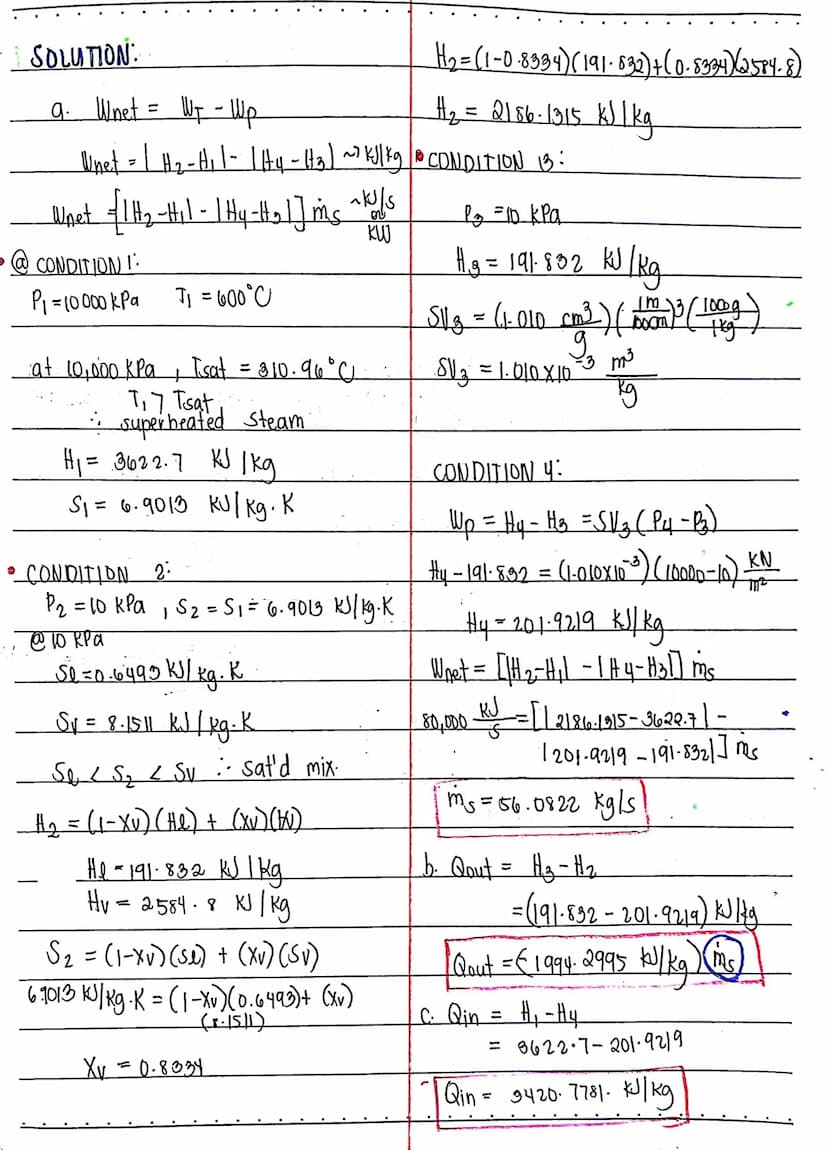 SOLUTION:
a. Wnet = WT - WP
Wnet = | H2-H1 | - | H4 - H3 | ~> kJ/kg
Wnet = [|H2-H1| - |H4-H3|] ṁs ~kJ/s or KW
@ CONDITION 1:
P1 = 10000 kPa T1 = 600°C
at 10,000 kPa , Tsat = 310.96°C
T1 > Tsat
∴ superheated steam
H1 = 3622.7 kJ/kg
S1 = 6.9013 kJ/kg.K
• CONDITION 2:
P2 = 10 kPa , S2 = S1 = 6.9013 kJ/kg.K
@ 10 kPa
Sl = 0.6493 kJ/kg.K
Sv = 8.1511 kJ/kg.K
Sl < S2 < Sv ∴ sat'd mix.
H2 = (1-Xv)(Hl) + (Xv)(Hv)
Hl = 191.832 kJ/kg
Hv = 2584.8 kJ/kg
S2 = (1-Xv)(Sl) + (Xv)(Sv)
6.9013 kJ/kg.K = (1-Xv)(0.6493)+ (Xv)
(8.1511)
Xv = 0.8334
H2=(1-0.8334)(191.832)+(0.8334)(2584.8)
H2 = 2186.1315 kJ/kg
• CONDITION 3:
P3 = 10 kPa
H3 = 191.832 kJ/kg
SV3 = (1.010 cm³/g)(1m/100cm)³(1000g/1kg)
SV3 = 1.010x10⁻³ m³/kg
CONDITION 4:
Wp = H4 - H3 = SV3 (P4 - P3)
H4 - 191.832 = (1.010x10⁻³)(10000-10) KN/m²
H4 = 201.9219 kJ/kg
Wnet = [|H2-H1| - |H4-H3|] ṁs
80,000 kJ/s = [| 2186.1315 - 3622.7 | -
| 201.9219 - 191.832|] ṁs
ṁs = 56.0822 kg/s
b. Qout = H3 - H2
= (191.832 - 201.9219) kJ/kg
Qout = (-1994.2995 kJ/kg) ṁs
c. Qin = H1 - H4
= 3622.7 - 201.9219
Qin = 3420.7781. kJ/kg